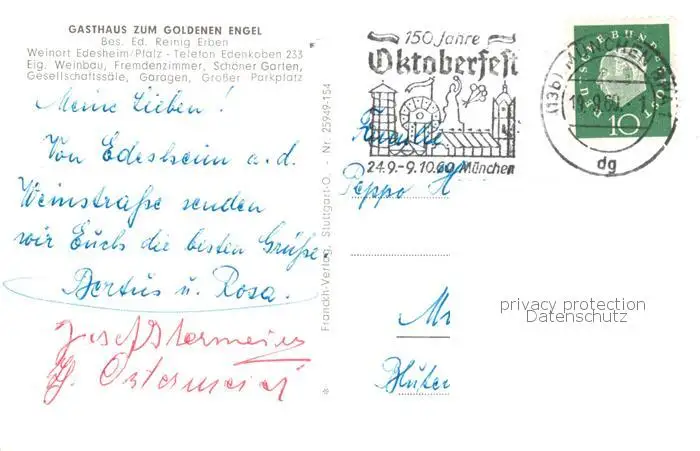 GASTHAUS ZUM GOLDENEN ENGEL
Bes. Ed. Reinig Erben
Weinort Edesheim/Pfalz - Telefon Edenkoben 233
Eig. Weinbau, Fremdenzimmer, Schöner Garten,
Gesellschaftssäle, Garagen, Großer Parkplatz
Meine Lieben!
Von Edesheim a.d.
Weinstraße senden
wir Euch die besten Grüße
Bertus u. Rosa.
Josef Ostermeier
Ostermeier
* Franckh-Verlag, Stuttgart-O. - Nr. 25949-154
150 Jahre
Oktoberfest
24.9.-9.10.60 München
(13b) MÜNCHEN
dg
10
Familie
Peppo H
privacy protection
Datenschutz